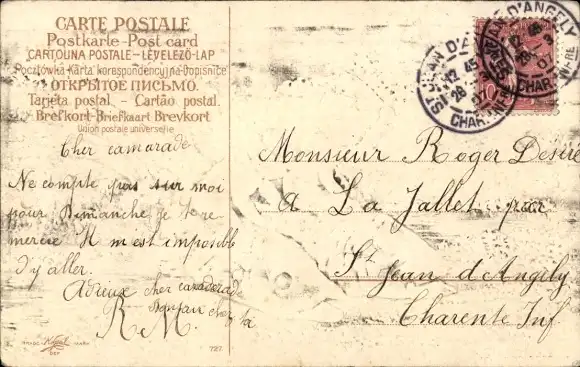 CARTE POSTALE
Postkarte-Post card
CARTOLINA POSTALE-LEVELEZŐ-LAP
Pocztówka-Karta korespondencyjna-Dopisnice
ОТКРЫТОЕ ПИСЬМО.
Tarjeta postal. - Cartão postal.
Brefkort-Briefkaart Brevkort
Union postale universelle
Cher camarade
Ne compte pas sur moi
pour Dimanche je te re
mercie Il m'est imposible
d'y aller.
Adieux cher camarade
R. M.
Monsieur Roger Désiré
A La Jallet par
St Jean d'Angely
Charente Inf
ST JEAN D'ANGELY
12 45
28
07
CHAR. INFRE
10
TRADE MARK
727.